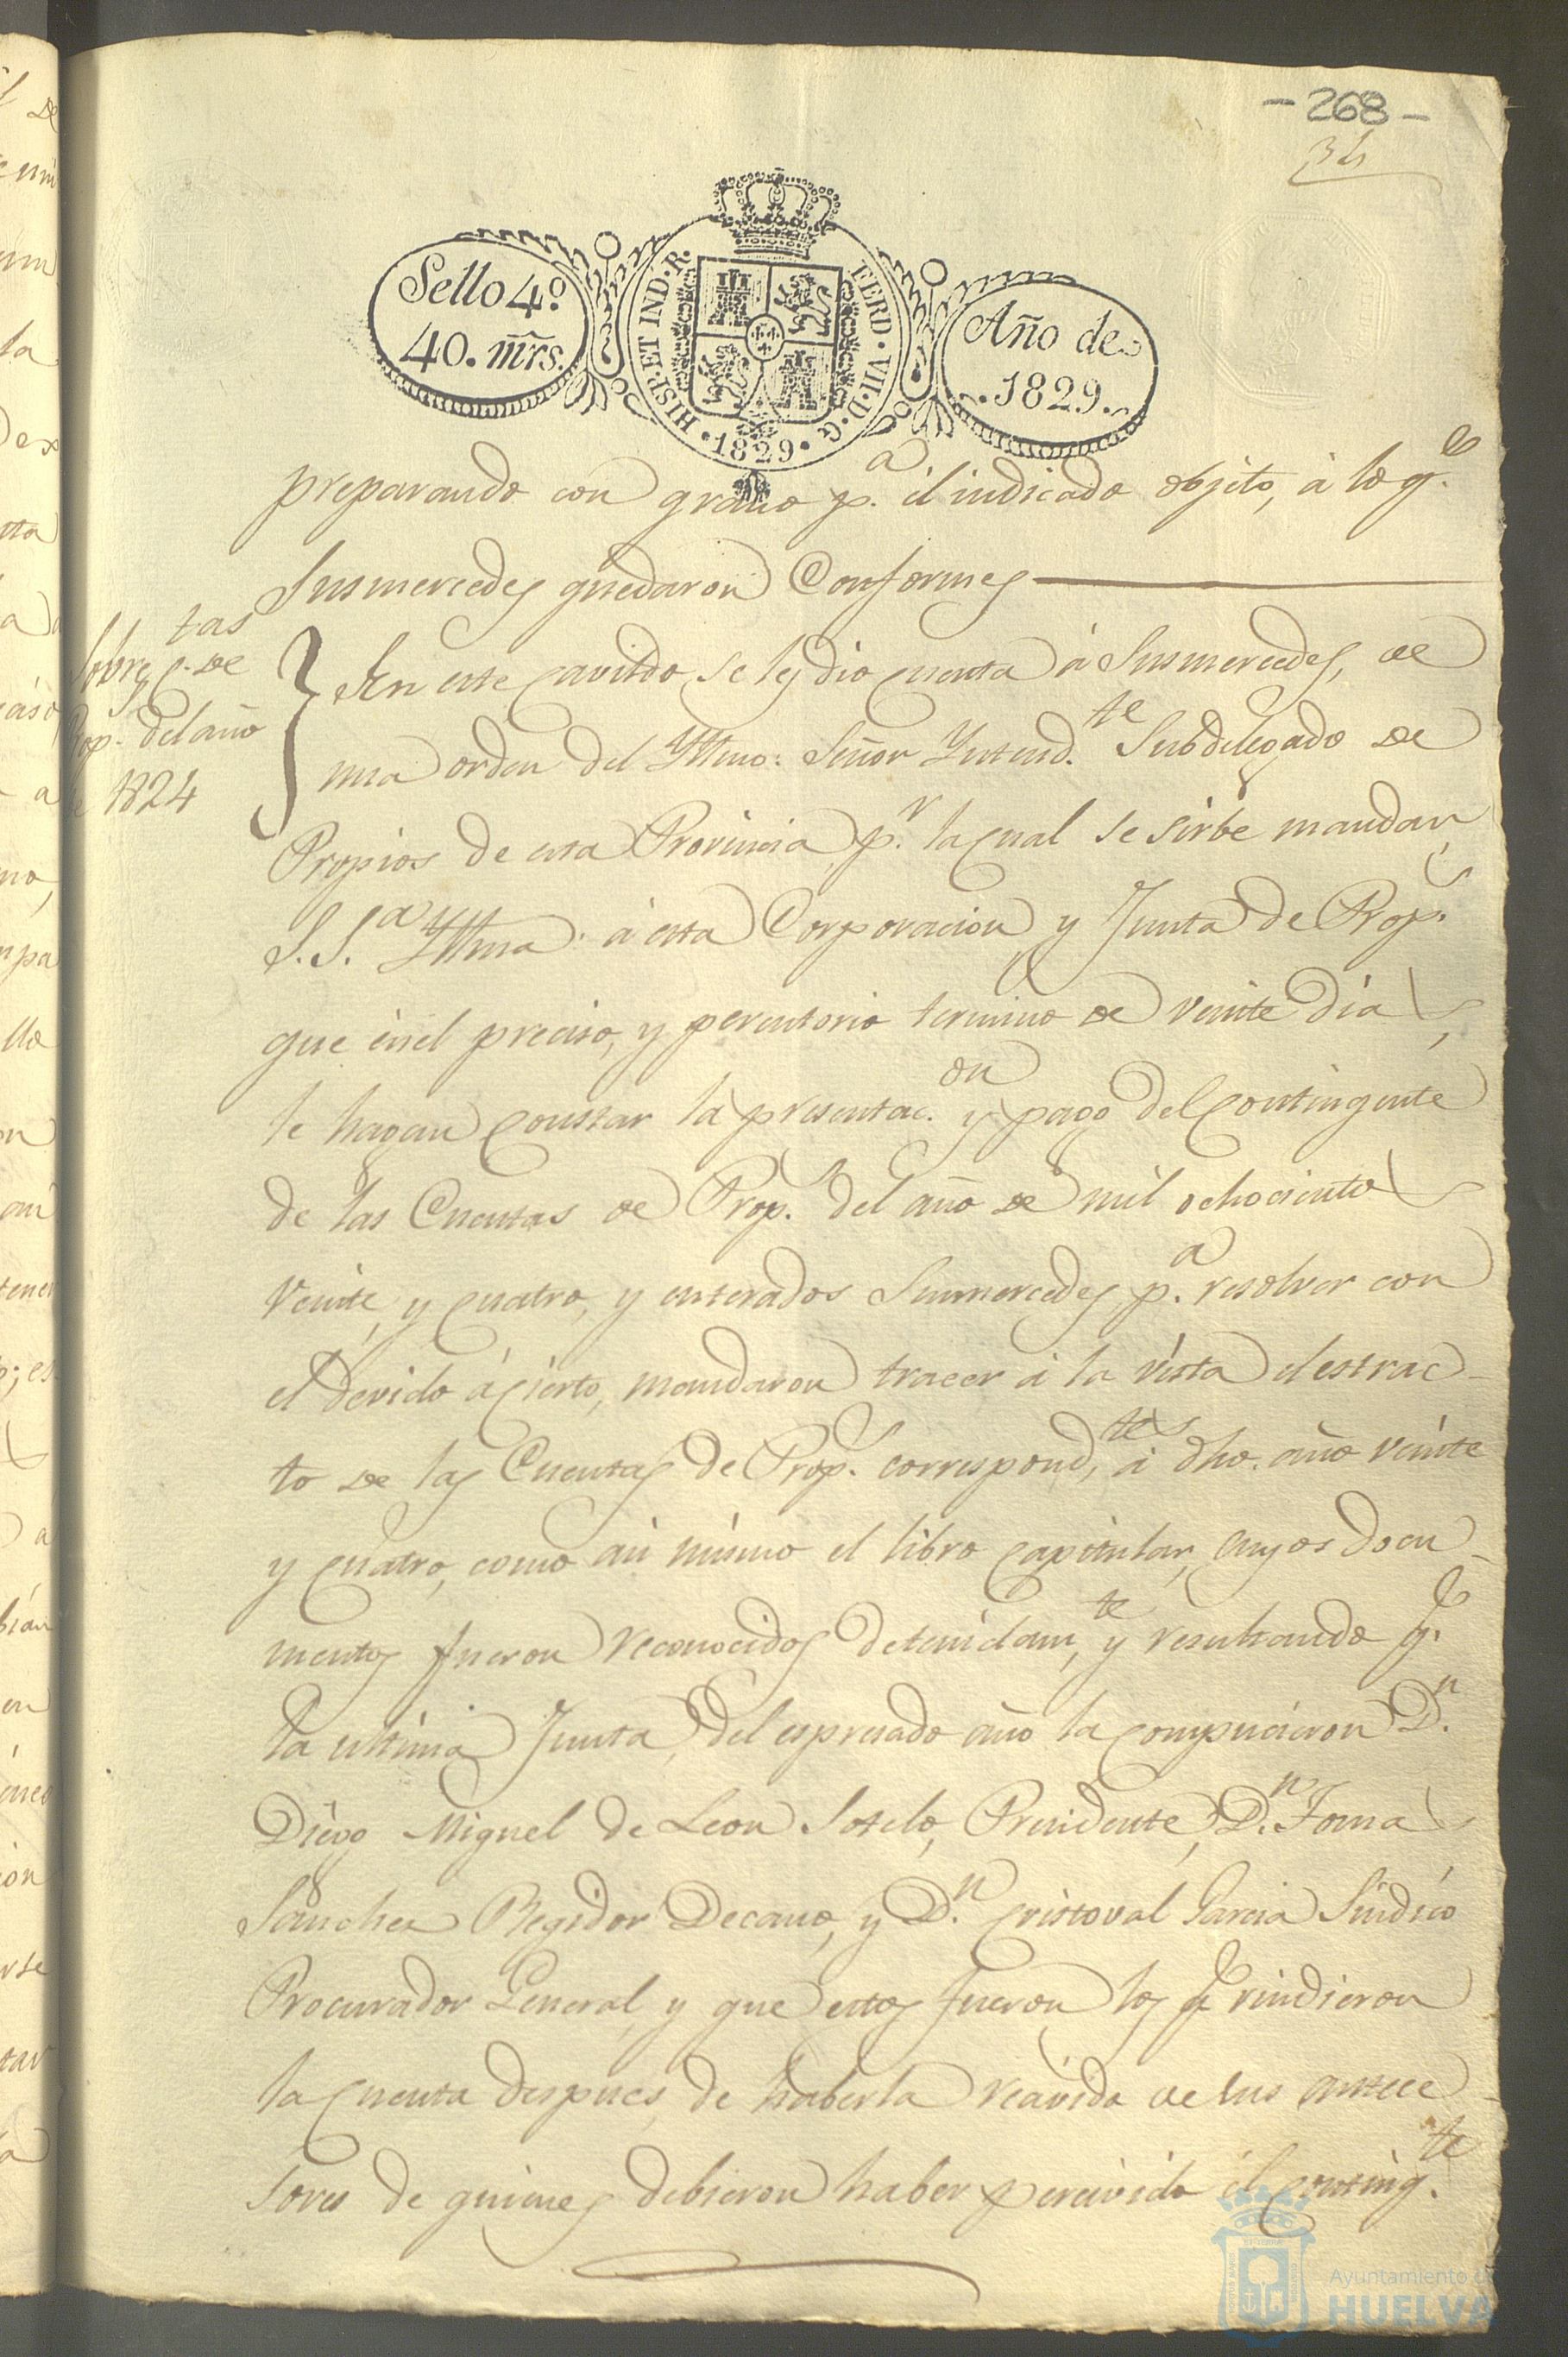 -268-
34
Sello 4º
40. mrs.
HISP. ET IND. R.
FERD. VII. D. G.
1829
Año de
1829.
preparando con grano p.ª él indicado objeto, à lo q.e
Susmercedes quedaron Conformes
Sobre C.tas de
Prop.s del año
de 1824
En este cavildo se les dio cuenta à Susmercedes, de
una orden del Yltmo: Señor Yntend.te Subdelegado de
Propios de esta Provincia, p.r la cual se sirbe mandar
S. S.ª Yltma: à esta Corporacion, y Junta de Prop.s
que ènel preciso, y perentorio termino de veinte dias,
le hagan constar la presentac.on y pago del contingente
de las Cuentas de Prop.s del año de mil ochocientos
veinte, y cuatro, y enterados Susmercedes, p.ª resolver con
el devido àcierto, mandaron traeer à la vista el estrac-
to de las Cuentas de Prop.s correspond.tes à dho. año veinte
y cuatro, como asi mismo el libro capitular, cuyos docu-
mentos fueron reconocidos detenidam.te, y resultando q.e
la ultima Junta, del espresado año la compucieron D.n
Diego Miguel de Leon Sotelo, Presidente, D.n Tomas
Sanchez Regidor Decano, y D.n Cristoval Garcia Sindico
Procurador General, y que estos fueron los q.e rindieron
la cuenta despues, de haberla reavido de sus antece-
sores de quienes debieron haber percivido él conting.te
Ayuntamiento de
HUELVA